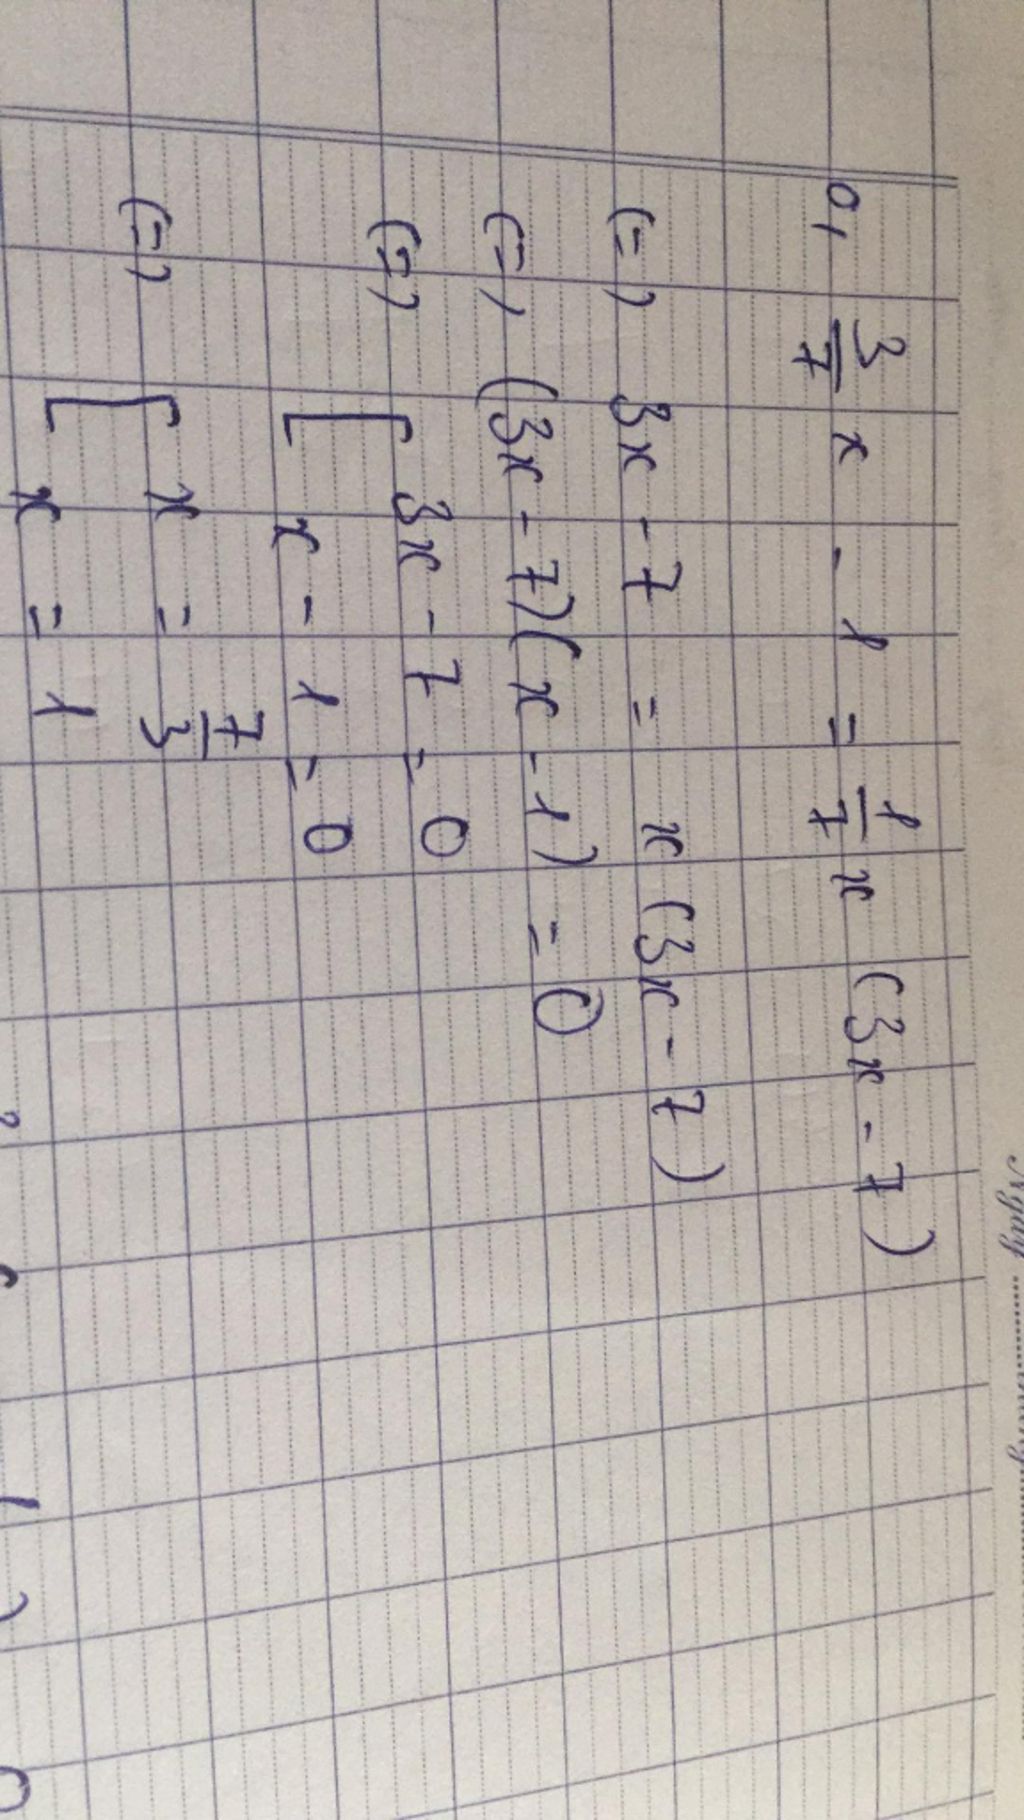 0, 3/7 x - 1 = 1/7 x (3x - 7)
(=) 3x - 7 = x (3x - 7)
(=) (3x - 7)(x - 1) = 0
(=) [ 3x - 7 = 0
x - 1 = 0
(=) [ x = 7/3
x = 1
Ngày